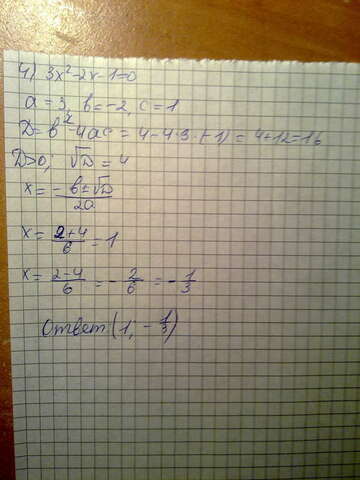 4) 3x²-2x-1=0
a=3, b=-2, c=1
D=b²-4ac=4-4·3·(-1)=4+12=16
D>0; √D=4
x=-b±√D/2a
x=2+4/6=1
x=2-4/6=-2/6=-1/3
Ответ(1; -1/3)